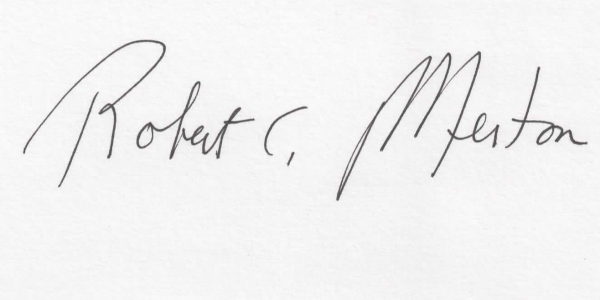 Robert C. Merton